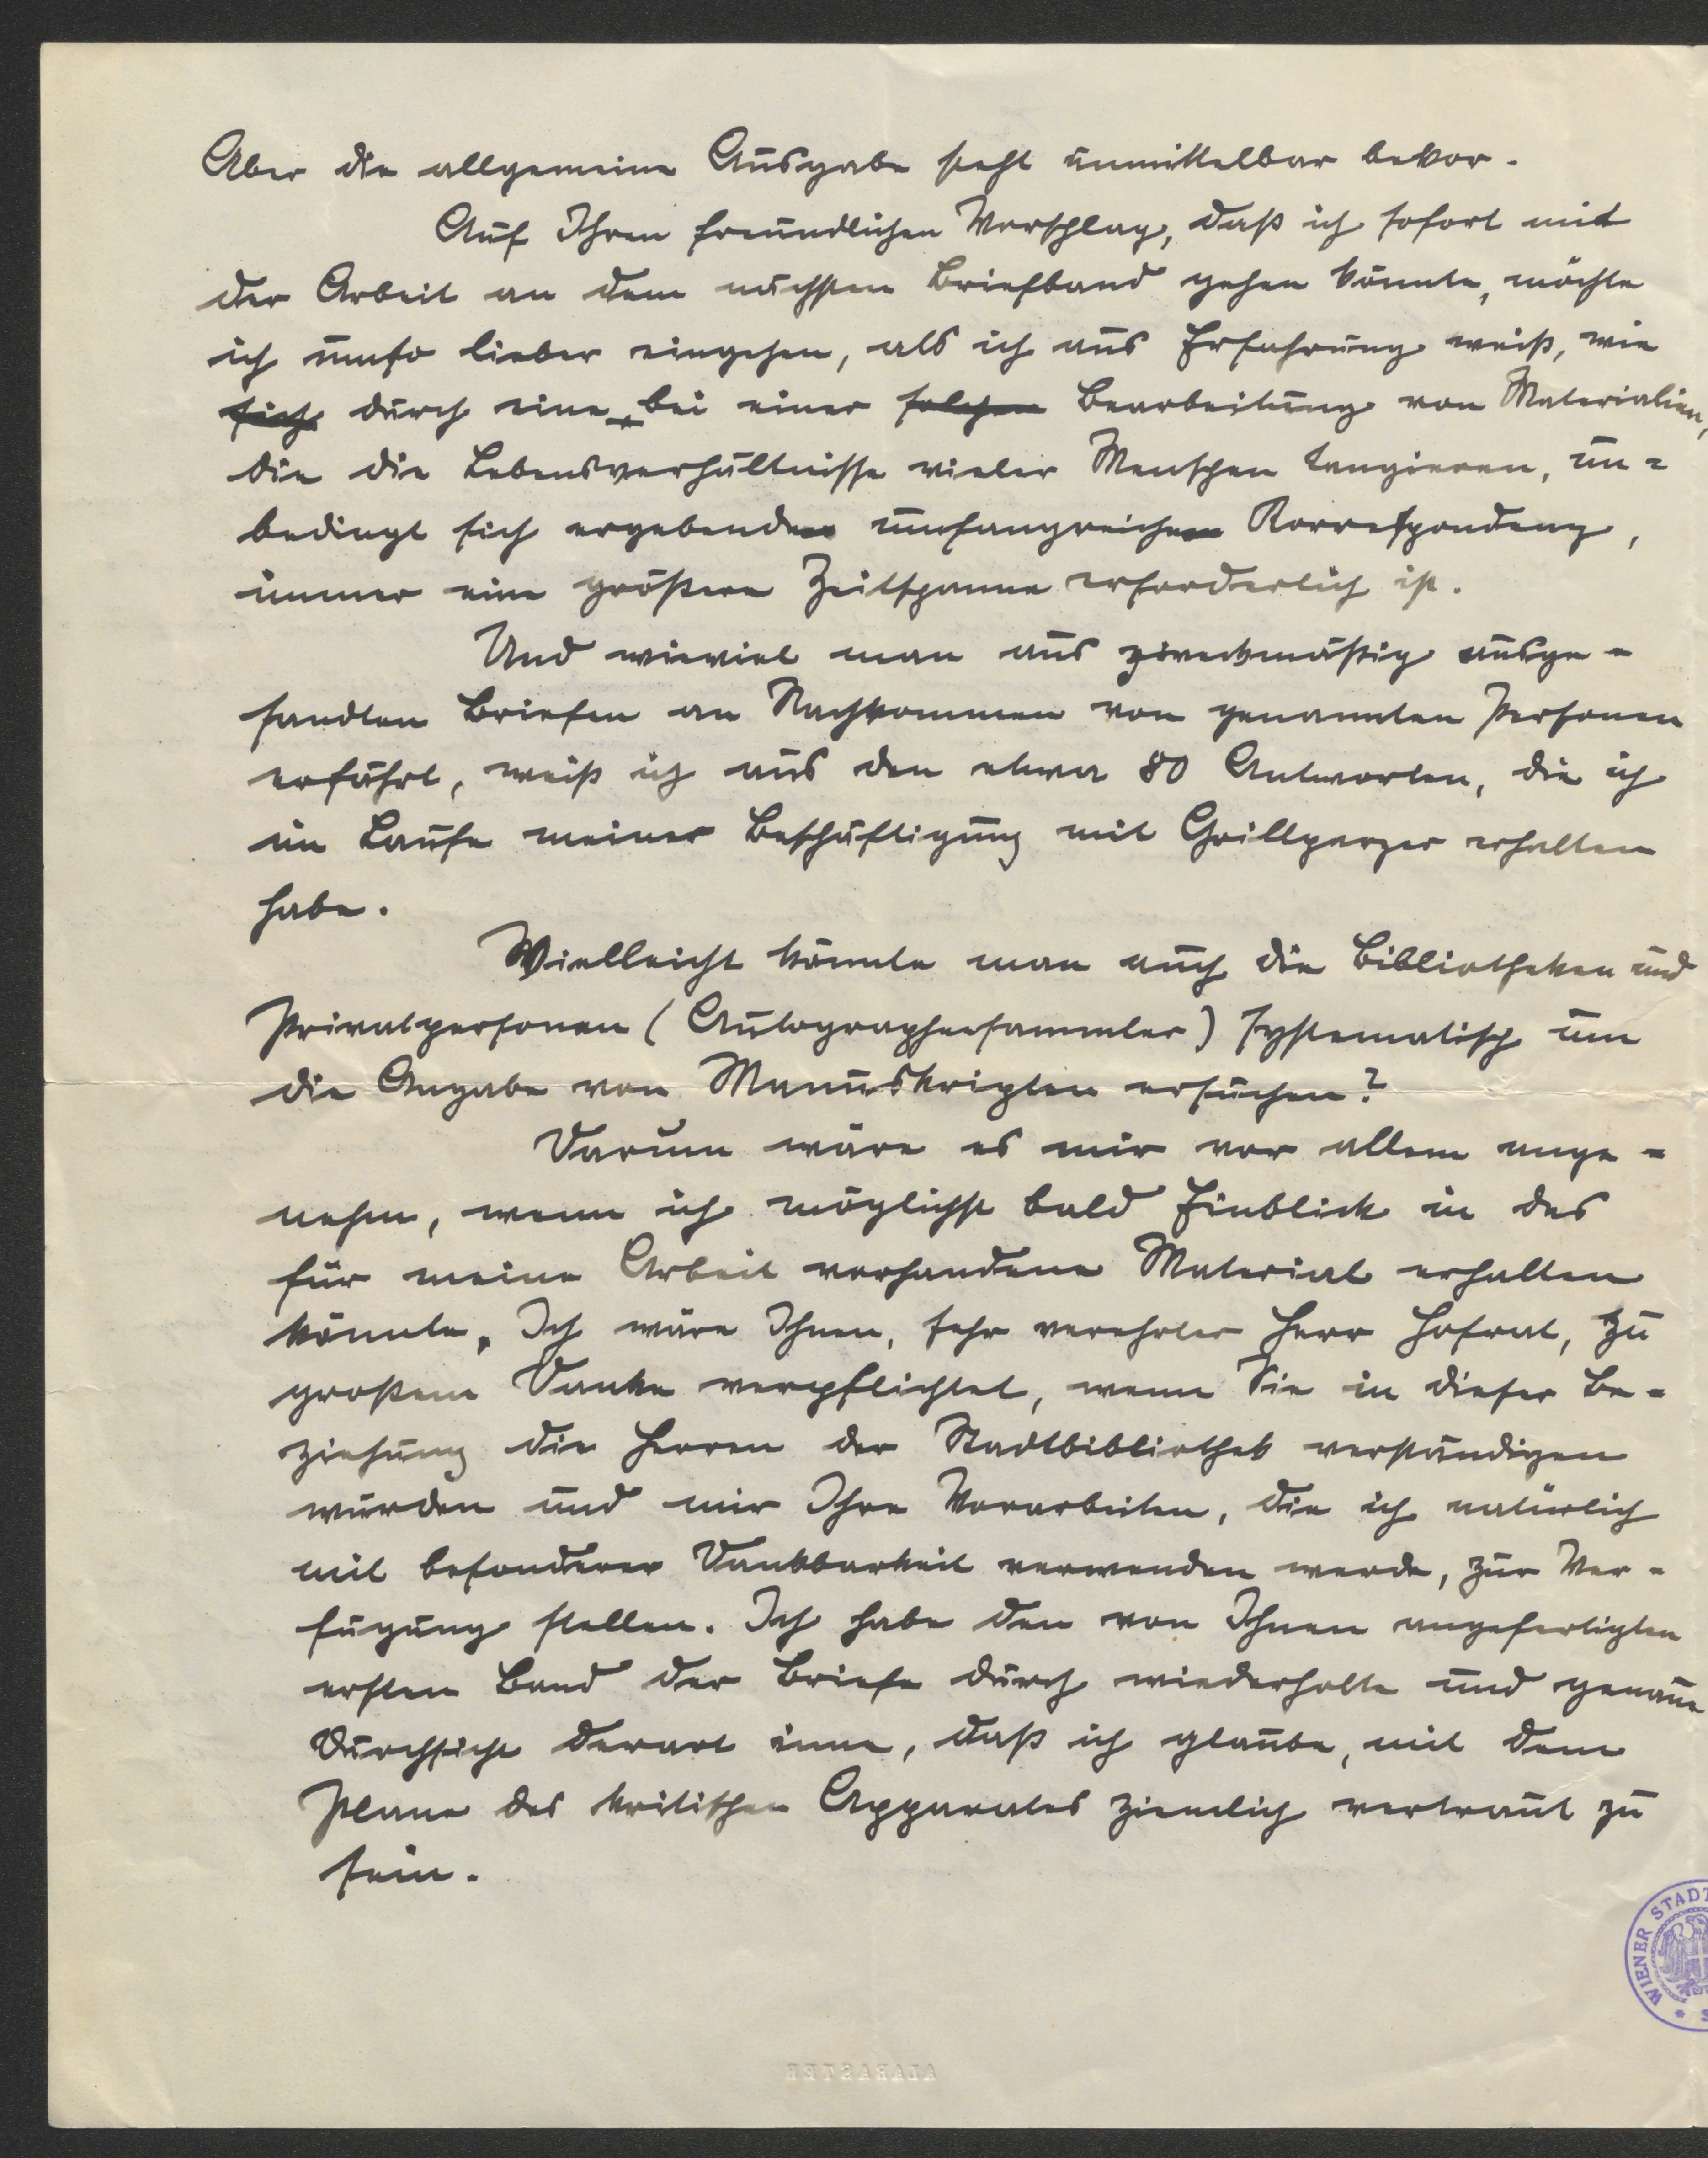 Aber die allgemeine Ausgabe steht unmittelbar bevor.
Auf Ihren freundlichen Vorschlag, daß ich sofort mit
der Arbeit an dem nächsten Briefband gehen könnte, möchte
ich umso lieber eingehen, als ich aus Erfahrung weiß, wie
sich durch eine, bei einer solchen Bearbeitung von Materialien,
die die Lebensverhältnisse vieler Menschen tangieren, un=
bedingt sich ergebenden umfangreichen Korrespondenz,
immer eine größere Zeitspanne erforderlich ist.
Und wieviel man aus zweckmäßig ausge=
sandten Briefen an Nachkommen von genannten Personen
erfährt, weiß ich aus den etwa 80 Antworten, die ich
im Laufe meiner Beschäftigung mit Grillparzer erhalten
habe.
Vielleicht könnte man auch die Bibliotheken und
Privatpersonen (Autographensammler) systematisch um
die Angabe von Manuskripten ersuchen?
Darum wäre es mir vor allem ange=
nehm, wenn ich möglichst bald Einblick in das
für meine Arbeit vorhandene Material erhalten
könnte. Ich wäre Ihnen, sehr verehrter Herr Hofrat, zu
großem Danke verpflichtet, wenn Sie in dieser Be=
ziehung die Herren der Stadtbibliothek verständigen
würden und mir Ihre Vorarbeiten, die ich natürlich
mit besonderer Dankbarkeit verwenden werde, zur Ver=
fügung stellen. Ich habe den von Ihnen angefertigten
ersten Band der Briefe durch wiederholte und genaue
Durchsicht derart inne, daß ich glaube, mit dem
Plane des kritischen Apparates ziemlich vertraut zu
sein.
WIENER STADT
ALABASTER